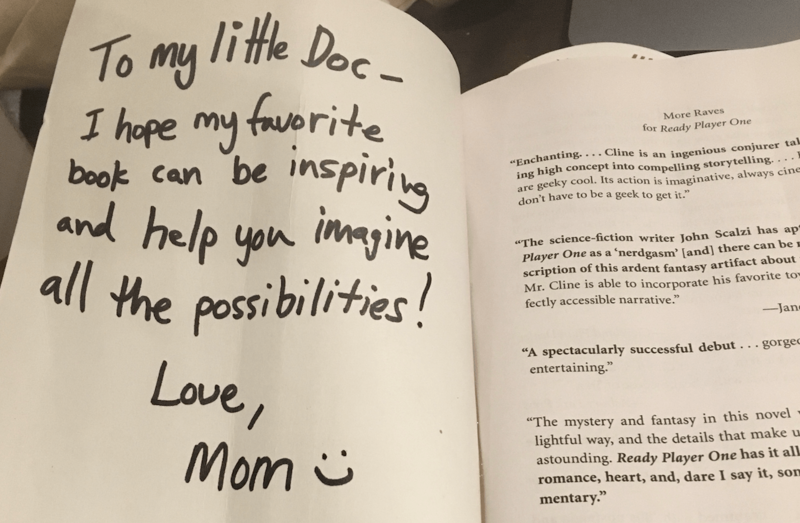 To my little Doc –
I hope my favorite
book can be inspiring
and help you imagine
all the possibilities!
Love,
Mom
More Raves
for Ready Player One
“Enchanting. . . . Cline is an ingenious conjurer
ing high concept into compelling storytelling. . . .
are geeky cool. Its action is imaginative, always
don’t have to be a geek to get it.”
“The science-fiction writer John Scalzi has
Player One as a ‘nerdgasm’ [and] there can be
scription of this ardent fantasy artifact about
Mr. Cline is able to incorporate his favorite
fectly accessible narrative.”
“A spectacularly successful debut . . .
entertaining.”
“The mystery and fantasy in this novel
lightful way, and the details that make
astounding. Ready Player One has it all
romance, heart, and, dare I say it,
mentary.”